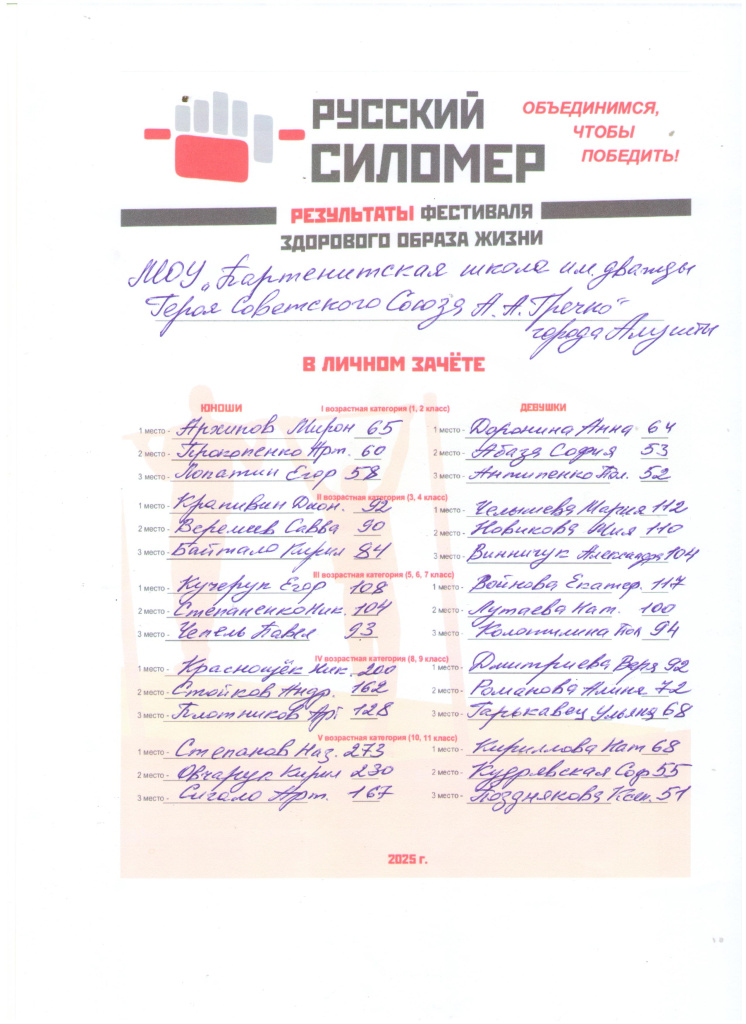 РУССКИЙ
СИЛОМЕР
ОБЪЕДИНИМСЯ,
ЧТОБЫ
ПОБЕДИТЬ!
РЕЗУЛЬТАТЫ ФЕСТИВАЛЯ
ЗДОРОВОГО ОБРАЗА ЖИЗНИ
МОУ „Партенитская школа им. дважды
Героя Советского Союза А. А. Гречко"
города Алушты
В ЛИЧНОМ ЗАЧЁТЕ
ЮНОШИ I возрастная категория (1, 2 класс) ДЕВУШКИ
1 место - Архипов Мирон 65 1 место - Доронина Анна 64
2 место - Прокопенко Арт. 60 2 место - Абаза София 53
3 место - Лопатин Егор 58 3 место - Антипенко Пол. 52
II возрастная категория (3, 4 класс)
1 место - Крапивин Дион. 92 1 место - Челышева Мария 112
2 место - Веремеев Савва 90 2 место - Новикова 110
3 место - Байтало Кирил 84 3 место - Винничук Александра 104
III возрастная категория (5, 6, 7 класс)
1 место - Кучерук Егор 108 1 место - Войнова Екатер. 117
2 место - Степаненко Ник. 104 2 место - Лутаева Нат. 100
3 место - Чепель Павел 93 3 место - Колотилина Пол 94
IV возрастная категория (8, 9 класс)
1 место - Краснощёк Ник. 200 1 место - Дмитриева Вера 92
2 место - Стойков Андр. 162 2 место - Романова Алина 72
3 место - Плотников Арт 128 3 место - Гарькавец Ульяна 68
V возрастная категория (10, 11 класс)
1 место - Степанов Наз. 273 1 место - Кириллова Нат 68
2 место - Овчарук Кирил 230 2 место - Кудрявская Соф 55
3 место - Сигало Арт. 167 3 место - Позднякова Ксен. 51
2025 г.